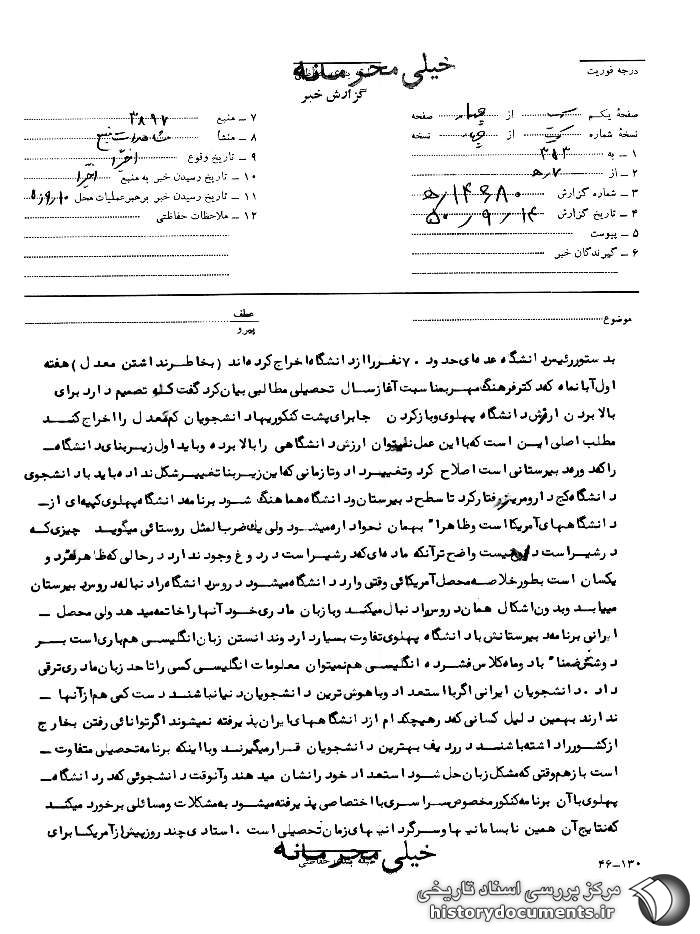 خیلی محرمانه
درجه فوریت
گزارش خبر
صفحهٔ یکم از چهار صفحه
نسخهٔ شماره از نسخه
۱ – به ۳۵۳
۲ – از ۷/ه
۳ – شماره گزارش ۱۴۶۸۰/ه
۴ – تاریخ گزارش ۵۰/۹/۱۴
۵ – پیوست
۶ – گیرندگان خبر
۷ – منبع ۳۸۹۷
۸ – منشأ مشاهدات منبع
۹ – تاریخ وقوع اخیرا
۱۰ – تاریخ رسیدن خبر به منبع اخیرا
۱۱ – تاریخ رسیدن خبر برهبر عملیات محل
۱۲ – ملاحظات حفاظتی
موضوع
عطف
پیرو
بدستور رئیس دانشگاه عده‌ای حدود ۷۰ نفر را از دانشگاه اخراج کرده‌اند (بخاطر نداشتن معدل) هفته
اول آبانماه که دکتر فرهنگ مهر بمناسبت آغاز سال تحصیلی مطالبی بیان کرد گفت که او تصمیم دارد برای
بالا بردن ارزش دانشگاه پهلوی و باز کردن جا برای پشت کنکوریها دانشجویان کم معدل را اخراج کند
مطلب اصلی این است که با این عمل نمیتوان ارزش دانشگاهی را بالا برده و باید اول زیربنای دانشگاه
را که دوره دبیرستانی است اصلاح کرد و تغییر داد و تا زمانی که این زیربنا تغییر شکل نداده باید با دانشجوی
دانشگاه کج دار و مریز رفتار کرد تا سطح دبیرستان و دانشگاه هماهنگ شود برنامه دانشگاه پهلوی کپیه‌ای از
دانشگاههای آمریکا است و ظاهرا" بهمان نحو اداره میشود ولی یک ضرب‌المثل روستائی میگوید چیزی که
در شیر است در نیست واضح‌تر آنکه ماده‌ای که در شیر است در دوغ وجود ندارد در حالی که ظاهر هر دو
یکسان است بطور خلاصه محصل آمریکائی وقتی وارد دانشگاه میشود دروس دانشگاه را دنباله دروس دبیرستان
مییابد و بدون اشکال همان دروس را دنبال میکند و با زبان مادری خود آنها را خاتمه میدهد ولی محصل
ایرانی برنامه دبیرستانش با دانشگاه پهلوی تفاوت بسیار دارد و ندانستن زبان انگلیسی هم باری است بر
دوشش ضمنا" با دو ماه کلاس فشرده انگلیسی هم نمیتوان معلومات انگلیسی کسی را تا حد زبان مادری ترقی
داد . دانشجویان ایرانی اگر با استعداد و باهوش‌ترین دانشجویان دنیا نباشند دست کمی هم از آنها
ندارند بهمین دلیل کسانی که در هیچکدام از دانشگاههای ایران پذیرفته نمیشوند اگر توانائی رفتن بخارج
از کشور را داشته باشند در ردیف بهترین دانشجویان قرار میگیرند و با اینکه برنامه تحصیلی متفاوت
است باز هم وقتی که مشکل زبان حل شود استعداد خود را نشان میدهند و آنوقت دانشجوئی که در دانشگاه
پهلوی با آن برنامه کنکور مخصوص سراسری با اختصاصی پذیرفته میشود به مشکلات و مسائلی برخورد میکند
که نتایج آن همین نابسامانیها و سرگردانیهای زمان تحصیلی است . استادی چند روز پیش از آمریکا برای
خیلی محرمانه
۱۳۰-۴۶
مرکز بررسی اسناد تاریخی
historydocuments.ir